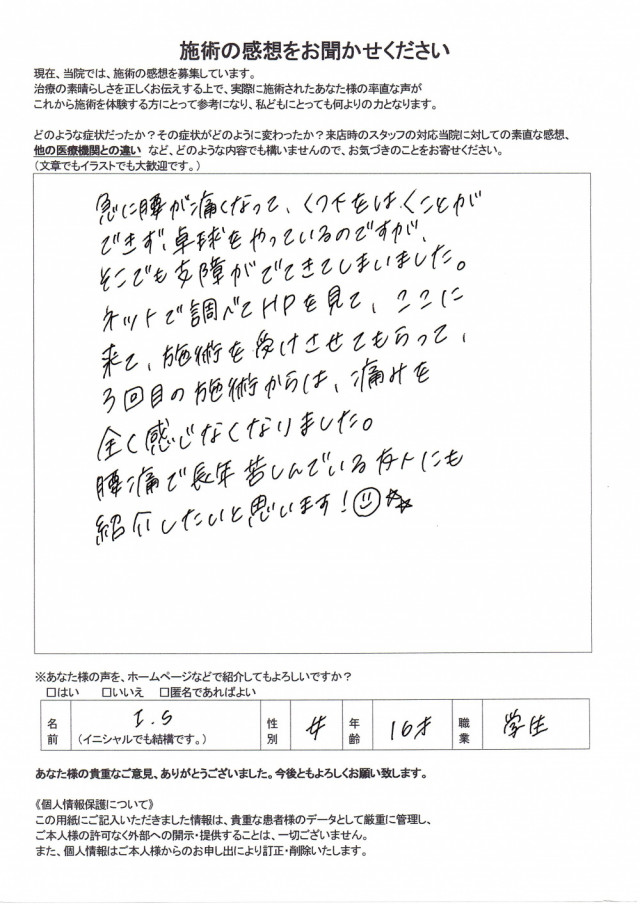 施術の感想をお聞かせください
現在、当院では、施術の感想を募集しています。
治療の素晴らしさを正しくお伝えする上で、実際に施術されたあなた様の率直な声が
これから施術を体験する方にとって参考になり、私どもにとっても何よりの力となります。
どのような症状だったか？その症状がどのように変わったか？来店時のスタッフの対応当院に対しての素直な感想、
他の医療機関との違い など、どのような内容でも構いませんので、お気づきのことをお寄せください。
（文章でもイラストでも大歓迎です。）
急に腰が痛くなって、くつ下をはくことが
できず、卓球をやっているのですが、
そこでも支障がでてきてしまいました。
ネットで調べてHPを見て、ここに
来て、施術を受けさせてもらって、
3回目の施術からは、痛みを
全く感じなくなりました。
腰痛で長年苦しんでいる友人にも
紹介したいと思います！
※あなた様の声を、ホームページなどで紹介してもよろしいですか？
□はい □いいえ □匿名であればよい
名前 I.S （イニシャルでも結構です。） 性別 女 年齢 16才 職業 学生
あなた様の貴重なご意見、ありがとうございました。今後ともよろしくお願い致します。
《個人情報保護について》
この用紙にご記入いただきました情報は、貴重な患者様のデータとして厳重に管理し、
ご本人様の許可なく外部への開示・提供することは、一切ございません。
また、個人情報はご本人様からのお申し出により訂正・削除いたします。